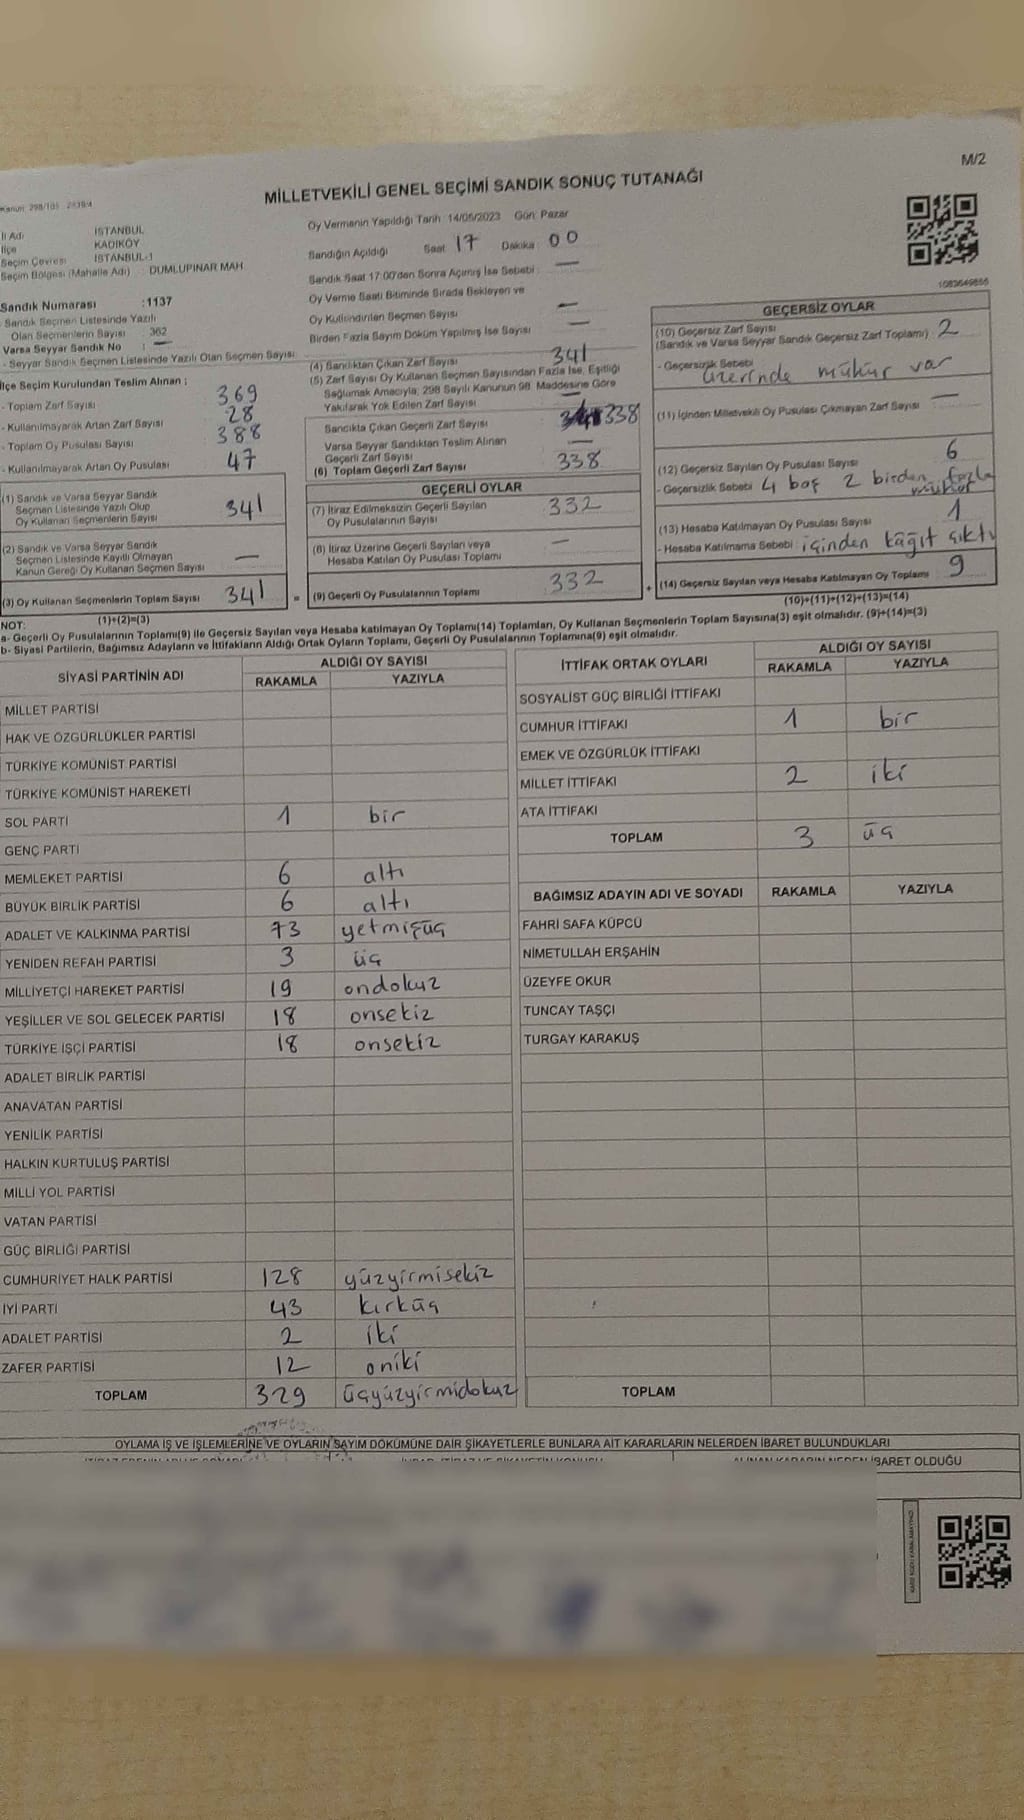 M/2
MİLLETVEKİLİ GENEL SEÇİMİ SANDIK SONUÇ TUTANAĞI
Kanun: 298/105
İl Adı İSTANBUL
İlçe KADIKÖY
Seçim Çevresi İSTANBUL-1
Seçim Bölgesi (Mahalle Adı) : DUMLUPINAR MAH
Sandık Numarası :1137
- Sandık Seçmen Listesinde Yazılı
Olan Seçmenlerin Sayısı : 362
Varsa Seyyar Sandık No : —
- Seyyar Sandık Seçmen Listesinde Yazılı Olan Seçmen Sayısı
İlçe Seçim Kurulundan Teslim Alınan :
- Toplam Zarf Sayısı 369
- Kullanılmayarak Artan Zarf Sayısı 28
- Toplam Oy Pusulası Sayısı 388
- Kullanılmayarak Artan Oy Pusulası 47
(1) Sandık ve Varsa Seyyar Sandık
Seçmen Listesinde Yazılı Olup
Oy Kullanan Seçmenlerin Sayısı 341
(2) Sandık ve Varsa Seyyar Sandık
Seçmen Listesinde Kayıtlı Olmayan
Kanun Gereği Oy Kullanan Seçmen Sayısı —
(3) Oy Kullanan Seçmenlerin Toplam Sayısı 341
(1)+(2)=(3)
Oy Vermenin Yapıldığı Tarih 14/05/2023 Gün: Pazar
Sandığın Açıldığı Saat 17 Dakika 00
Sandık Saat 17:00'den Sonra Açımış İse Sebebi : —
Oy Verme Saati Bitiminde Sırada Bekleyen ve
Oy Kullandırılan Seçmen Sayısı —
Birden Fazla Sayım Döküm Yapılmış İse Sayısı —
(4) Sandıktan Çıkan Zarf Sayısı 341
(5) Zarf Sayısı Oy Kullanan Seçmen Sayısından Fazla İse, Eşitliği
Sağlamak Amacıyla, 298 Sayılı Kanunun 98. Maddesine Göre
Yakılarak Yok Edilen Zarf Sayısı —
Sandıkta Çıkan Geçerli Zarf Sayısı 338
Varsa Seyyar Sandıktan Teslim Alınan
Geçerli Zarf Sayısı —
(6) Toplam Geçerli Zarf Sayısı 338
GEÇERLİ OYLAR
(7) İtiraz Edilmeksizin Geçerli Sayılan
Oy Pusulalarının Sayısı 332
(8) İtiraz Üzerine Geçerli Sayılan veya
Hesaba Katılan Oy Pusulası Toplamı —
(9) Geçerli Oy Pusulalarının Toplamı 332
1083649856
GEÇERSİZ OYLAR
(10) Geçersiz Zarf Sayısı
(Sandık ve Varsa Seyyar Sandık Geçersiz Zarf Toplamı) 2
- Geçersizlik Sebebi
üzerinde mühür var
(11) İçinden Milletvekili Oy Pusulası Çıkmayan Zarf Sayısı —
(12) Geçersiz Sayılan Oy Pusulası Sayısı 6
- Geçersizlik Sebebi 4 boş 2 birden fazla
mühür
(13) Hesaba Katılmayan Oy Pusulası Sayısı 1
- Hesaba Katılmama Sebebi : içinden kağıt çıktı
(14) Geçersiz Sayılan veya Hesaba Katılmayan Oy Toplamı 9
(10)+(11)+(12)+(13)=(14)
NOT:
a- Geçerli Oy Pusulalarının Toplamı(9) ile Geçersiz Sayılan veya Hesaba katılmayan Oy Toplamı(14) Toplamları, Oy Kullanan Seçmenlerin Toplam Sayısına(3) eşit olmalıdır. (9)+(14)=(3)
b- Siyasi Partilerin, Bağımsız Adayların ve İttifakların Aldığı Ortak Oyların Toplamı, Geçerli Oy Pusulalarının Toplamına(9) eşit olmalıdır.
SİYASİ PARTİNİN ADI ALDIĞI OY SAYISI
RAKAMLA YAZIYLA
MİLLET PARTİSİ
HAK VE ÖZGÜRLÜKLER PARTİSİ
TÜRKİYE KOMÜNİST PARTİSİ
TÜRKİYE KOMÜNİST HAREKETİ
SOL PARTİ 1 bir
GENÇ PARTİ
MEMLEKET PARTİSİ 6 altı
BÜYÜK BİRLİK PARTİSİ 6 altı
ADALET VE KALKINMA PARTİSİ 73 yetmişüç
YENİDEN REFAH PARTİSİ 3 üç
MİLLİYETÇİ HAREKET PARTİSİ 19 ondokuz
YEŞİLLER VE SOL GELECEK PARTİSİ 18 onsekiz
TÜRKİYE İŞÇİ PARTİSİ 18 onsekiz
ADALET BİRLİK PARTİSİ
ANAVATAN PARTİSİ
YENİLİK PARTİSİ
HALKIN KURTULUŞ PARTİSİ
MİLLİ YOL PARTİSİ
VATAN PARTİSİ
GÜÇ BİRLİĞİ PARTİSİ
CUMHURİYET HALK PARTİSİ 128 yüzyirmisekiz
İYİ PARTİ 43 kırküç
ADALET PARTİSİ 2 iki
ZAFER PARTİSİ 12 oniki
TOPLAM 329 üçyüzyirmidokuz
İTTİFAK ORTAK OYLARI ALDIĞI OY SAYISI
RAKAMLA YAZIYLA
SOSYALİST GÜÇ BİRLİĞİ İTTİFAKI
CUMHUR İTTİFAKI 1 bir
EMEK VE ÖZGÜRLÜK İTTİFAKI
MİLLET İTTİFAKI 2 iki
ATA İTTİFAKI
TOPLAM 3 üç
BAĞIMSIZ ADAYIN ADI VE SOYADI RAKAMLA YAZIYLA
FAHRİ SAFA KÜPCÜ
NİMETULLAH ERŞAHİN
ÜZEYFE OKUR
TUNCAY TAŞÇI
TURGAY KARAKUŞ
TOPLAM
OYLAMA İŞ VE İŞLEMLERİNE VE OYLARIN SAYIM DÖKÜMÜNE DAİR ŞİKAYETLERLE BUNLARA AİT KARARLARIN NELERDEN İBARET BULUNDUKLARI
ALINAN KARARIN NEDEN İBARET OLDUĞU